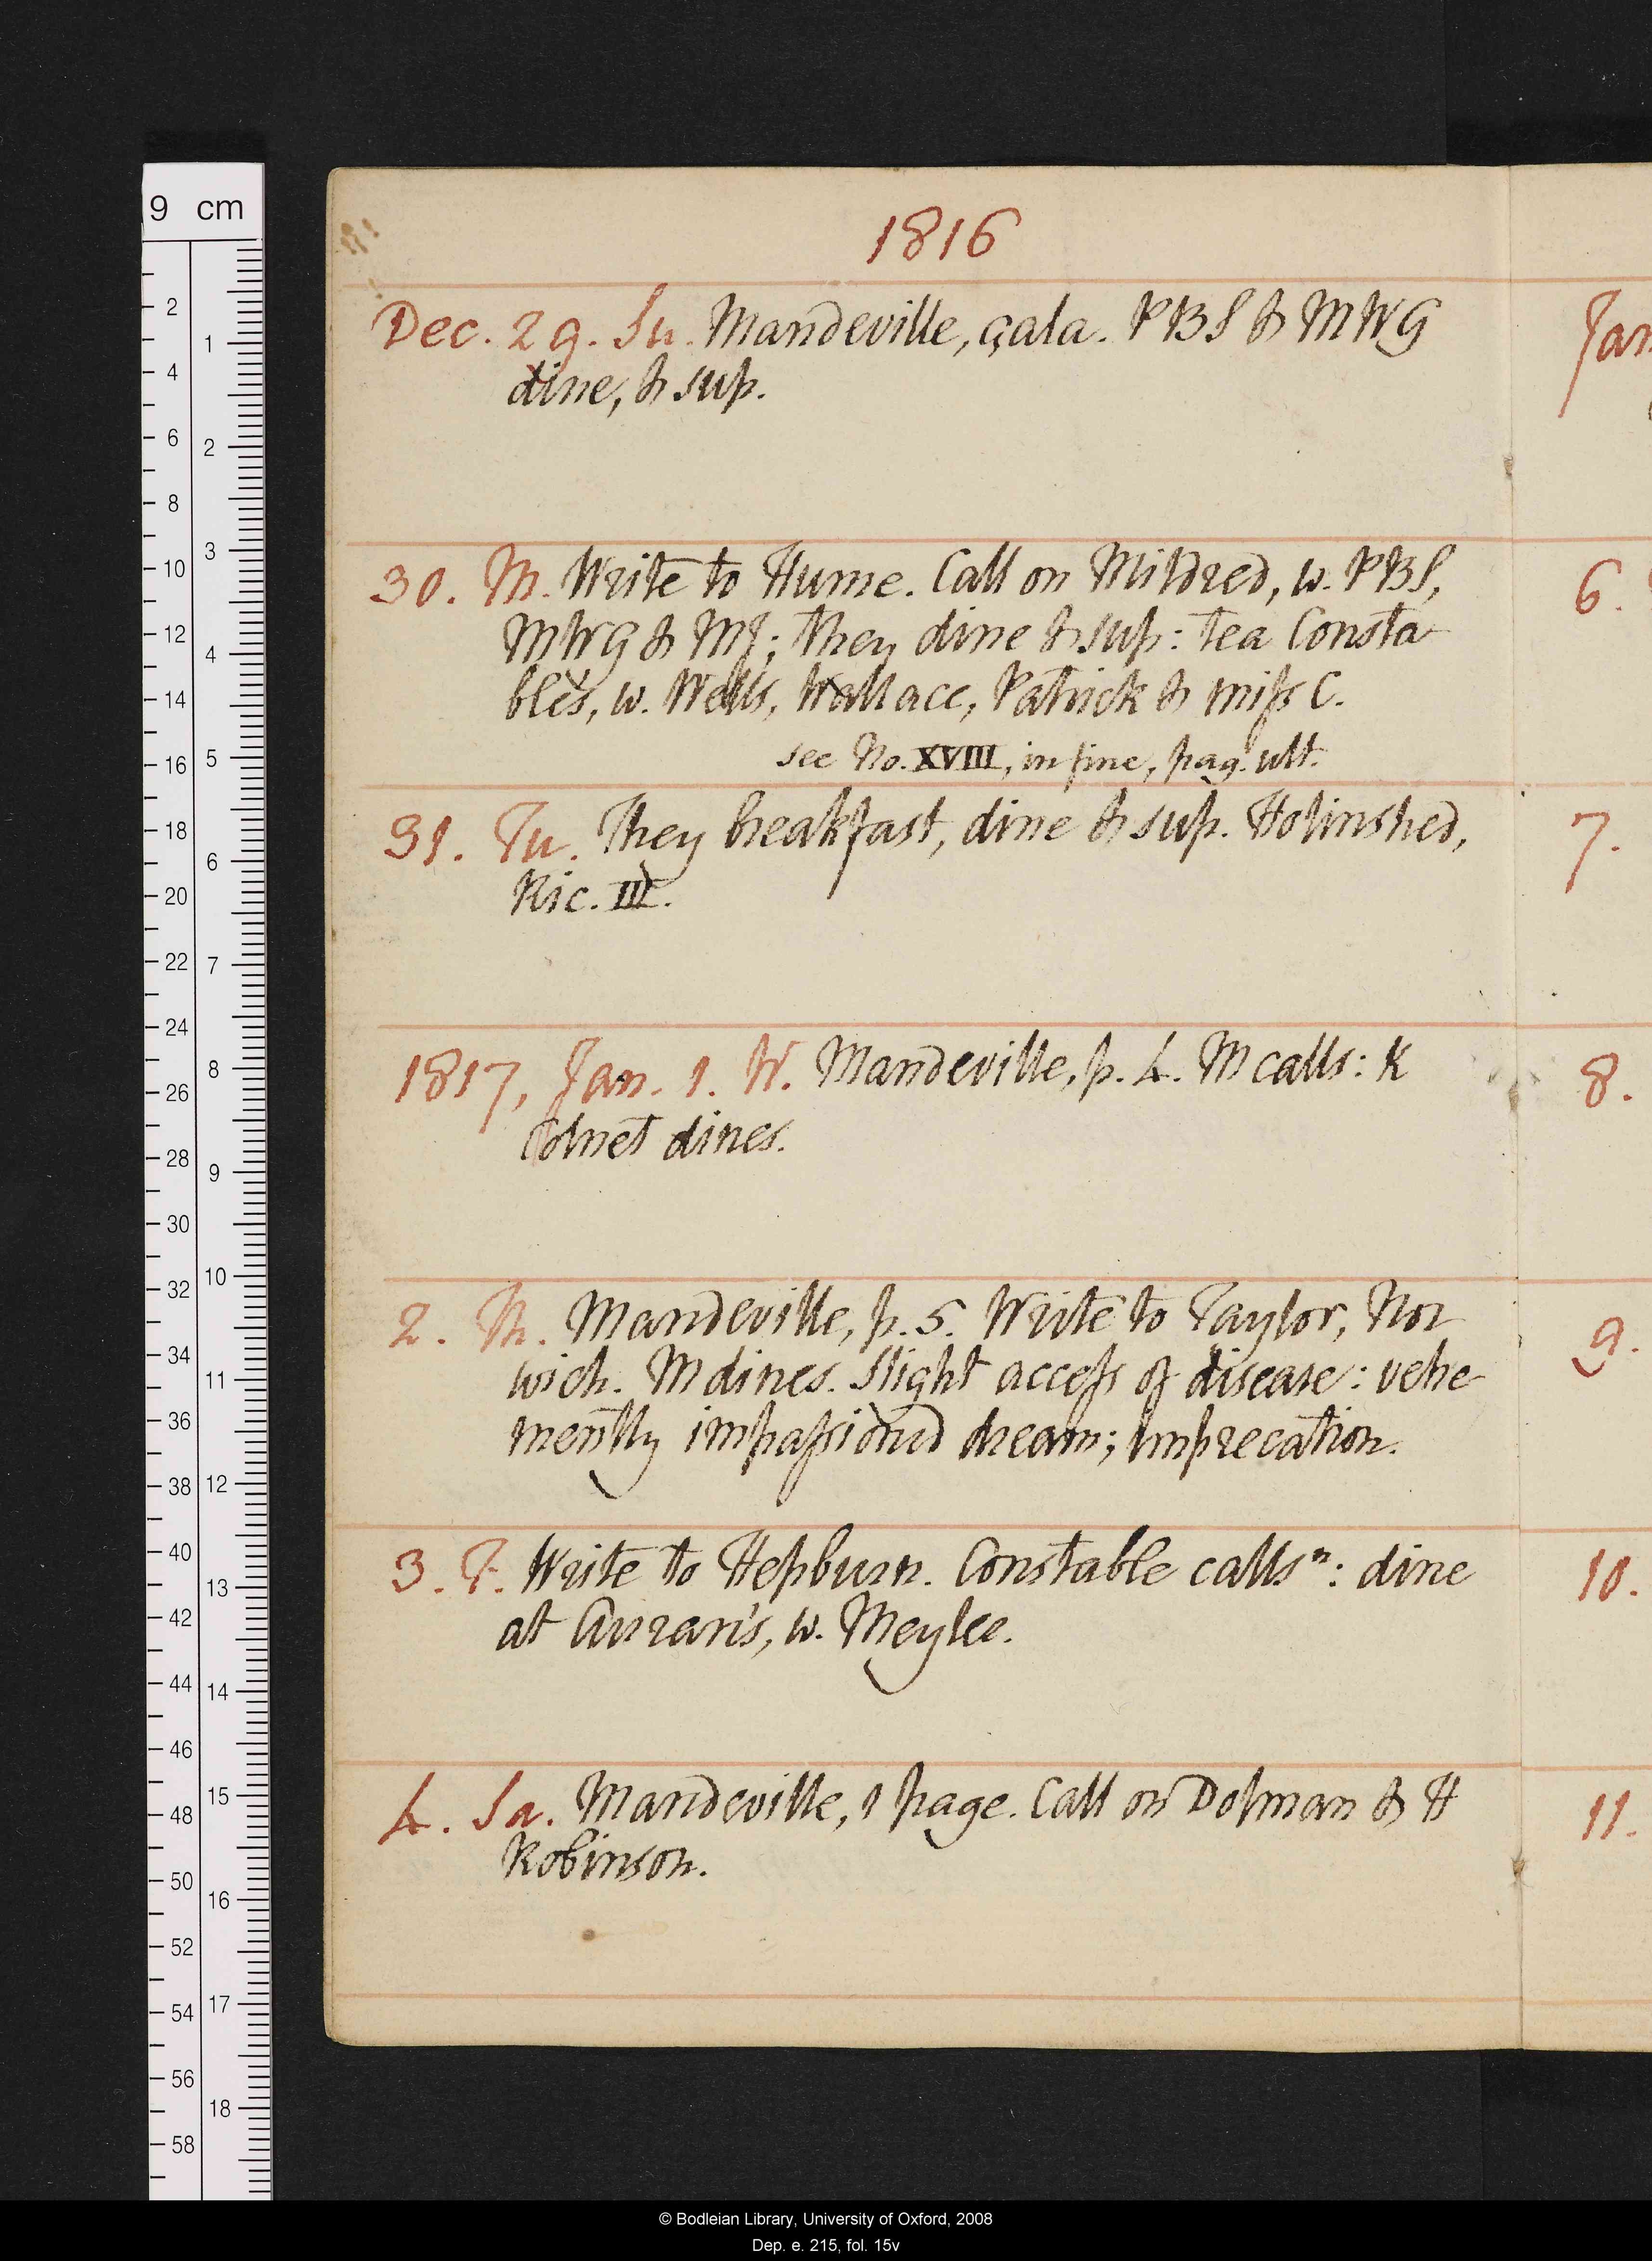 1816
Dec. 29. Su. Mandeville, çala. PBS & MWG
dine, & sup.
30. M. Write to Hume. Call on Mildred, w. PBS,
MWG & MJ; they dine & sup: tea Consta-
ble's, w. Wells, Wallace, Patrick & miss C.
see No. XVIII, in fine, pag. ult.
31. Tu. They breakfast, dine & sup. Holinshed,
Ric. III.
1817, Jan. 1. W. Mandeville, p. 4. M calls: K
Colnet dines.
2. Th. Mandeville, p. 5. Write to Taylor, Nor-
wich. M dines. Slight access of disease: vehe-
mently impassiond dream; imprecation.
3. F. Write to Hepburn. Constable calls n: dine
at Curran's, w. Meylee.
4. Sa. Mandeville, 1 page. Call on Dolman & H
Robinson.
Jan
6.
7.
8.
9.
10.
11.
9 cm
2 4 6 8 10 12 14 16 18 20 22 24 26 28 30 32 34 36 38 40 42 44 46 48 50 52 54 56 58
1 2 3 4 5 6 7 8 9 10 11 12 13 14 15 16 17 18
© Bodleian Library, University of Oxford, 2008
Dep. e. 215, fol. 15v